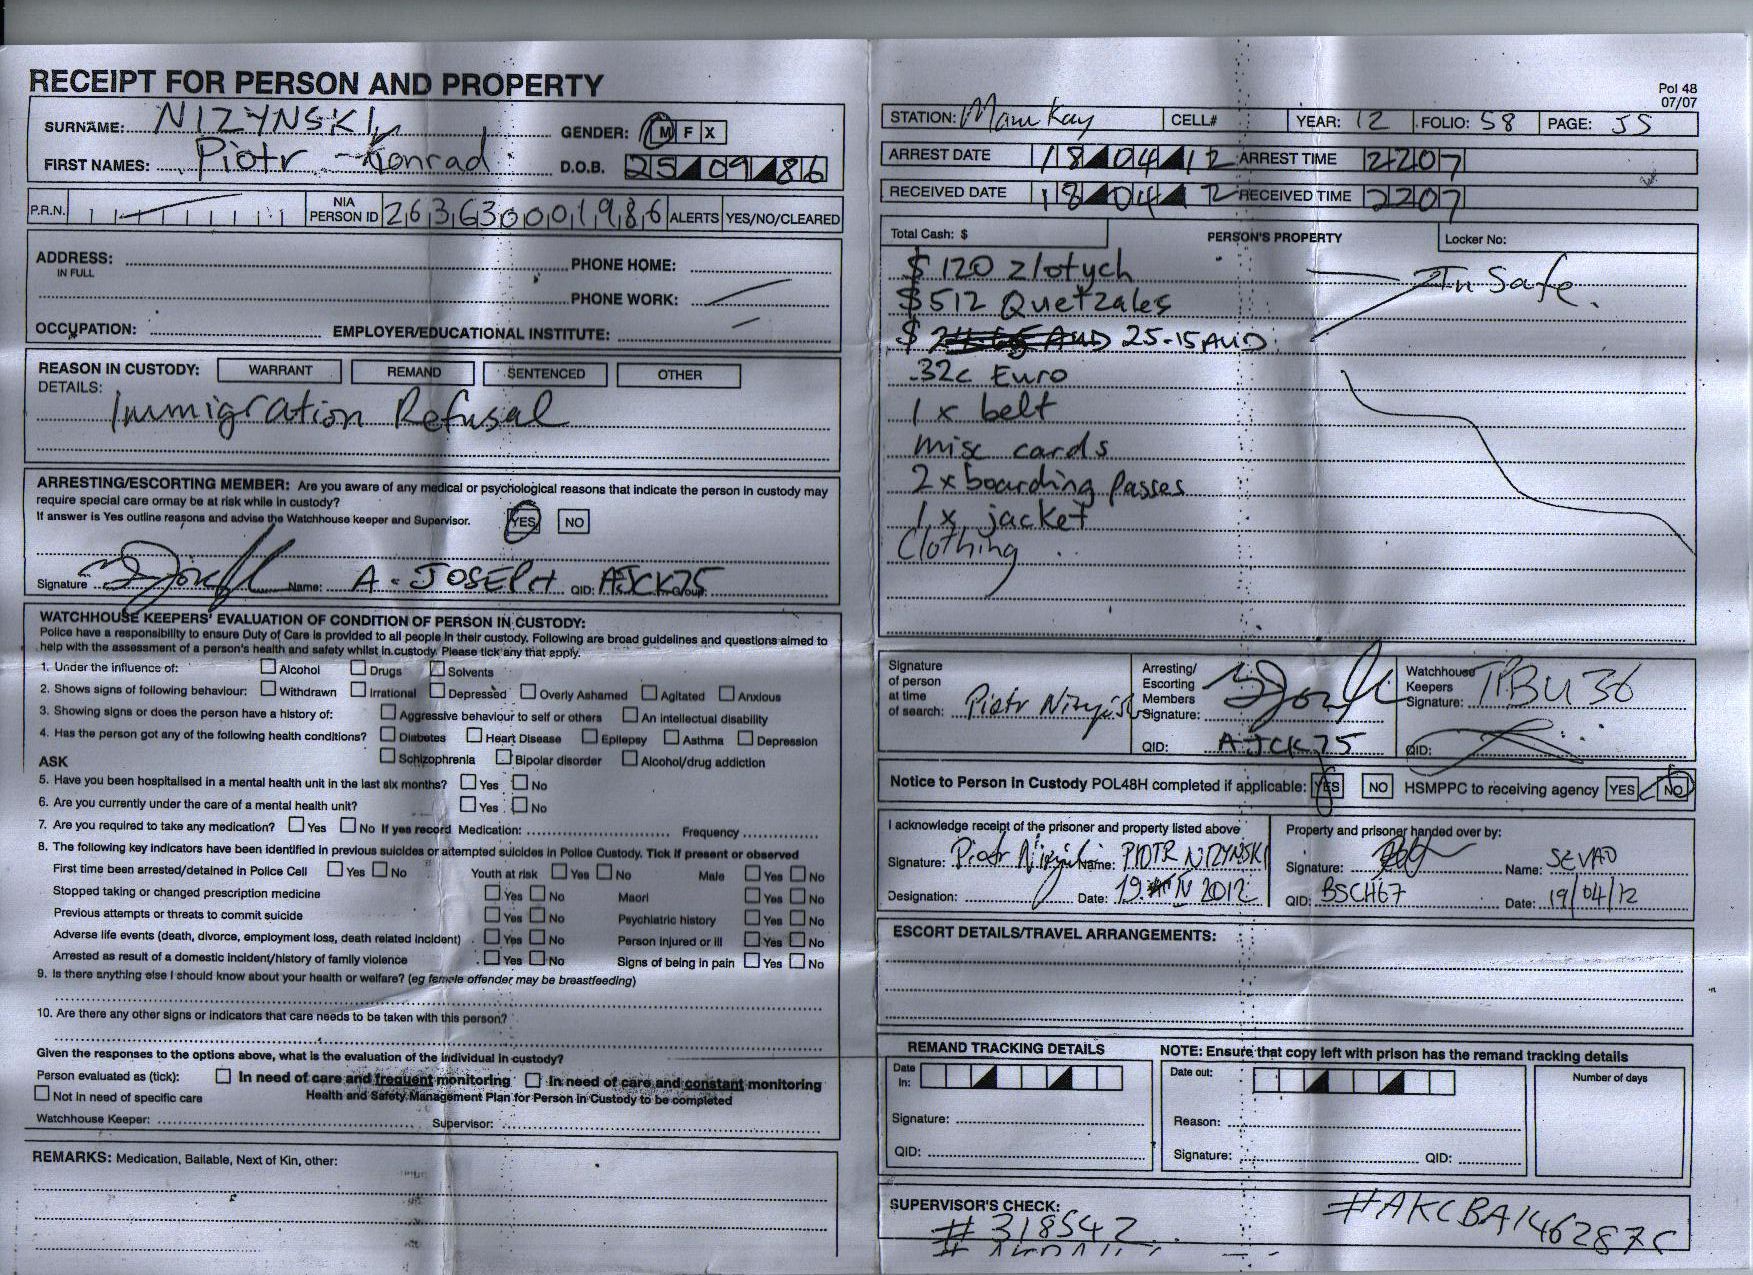 RECEIPT FOR PERSON AND PROPERTY
SURNAME: NIZYNSKI
GENDER: M F X
FIRST NAMES: Piotr Konrad
D.O.B. 25 09 86
P.R.N.
NIA PERSON ID 2636300019 86 ALERTS YES/NO/CLEARED
ADDRESS:
IN FULL
PHONE HOME:
PHONE WORK:
OCCUPATION: EMPLOYER/EDUCATIONAL INSTITUTE:
REASON IN CUSTODY: WARRANT REMAND SENTENCED OTHER
DETAILS:
Immigration Refusal
ARRESTING/ESCORTING MEMBER: Are you aware of any medical or psychological reasons that indicate the person in custody may
require special care ormay be at risk while in custody?
If answer is Yes outline reasons and advise the Watchhouse keeper and Supervisor. YES NO
Signature Name: A. JOSEPH QID: AJCK75 Group:
WATCHHOUSE KEEPERS' EVALUATION OF CONDITION OF PERSON IN CUSTODY:
Police have a responsibility to ensure Duty of Care is provided to all people in their custody. Following are broad guidelines and questions aimed to
help with the assessment of a person's health and safety whilst in custody. Please tick any that apply.
1. Under the influence of: Alcohol Drugs Solvents
2. Shows signs of following behaviour: Withdrawn Irrational Depressed Overly Ashamed Agitated Anxious
3. Showing signs or does the person have a history of: Aggressive behaviour to self or others An intellectual disability
4. Has the person got any of the following health conditions? Diabetes Heart Disease Epilepsy Asthma Depression
Schizophrenia Bipolar disorder Alcohol/drug addiction
ASK
5. Have you been hospitalised in a mental health unit in the last six months? Yes No
6. Are you currently under the care of a mental health unit? Yes No
7. Are you required to take any medication? Yes No If yes record Medication: Frequency
8. The following key indicators have been identified in previous suicides or attempted suicides in Police Custody. Tick if present or observed
First time been arrested/detained in Police Cell Yes No Youth at risk Yes No Male Yes No
Stopped taking or changed prescription medicine Yes No Maori Yes No
Previous attempts or threats to commit suicide Yes No Psychiatric history Yes No
Adverse life events (death, divorce, employment loss, death related incident) Yes No Person injured or ill Yes No
Arrested as result of a domestic incident/history of family violence Yes No Signs of being in pain Yes No
9. Is there anything else I should know about your health or welfare? (eg female offender may be breastfeeding)
10. Are there any other signs or indicators that care needs to be taken with this person?
Given the responses to the options above, what is the evaluation of the individual in custody?
Person evaluated as (tick): In need of care and frequent monitoring In need of care and constant monitoring
Not in need of specific care Health and Safety Management Plan for Person in Custody to be completed
Watchhouse Keeper: Supervisor:
REMARKS: Medication, Bailable, Next of Kin, other:
Pol 48
07/07
STATION: Manukay CELL# YEAR: 12 FOLIO: 58 PAGE: 55
ARREST DATE 18 04 12 ARREST TIME 2207
RECEIVED DATE 18 04 12 RECEIVED TIME 2207
Total Cash: $ PERSON'S PROPERTY Locker No:
$ 120 zlotych
In Safe.
$ 512 Quetzales
$ 25.15 AUD
.32c Euro
1 x belt
misc cards
2 x boarding passes
1 x jacket
Clothing
Signature of person at time of search: Piotr Nizyński
Arresting/Escorting Members Signature:
QID: AJCK75
Watchhouse Keepers Signature: TPBU36
QID:
Notice to Person in Custody POL48H completed if applicable: YES NO HSMPPC to receiving agency YES NO
I acknowledge receipt of the prisoner and property listed above
Signature: Piotr Niżyński Name: PIOTR NIZYNSKI
Designation: Date: 19 IV 2012
Property and prisoner handed over by:
Signature: Name: SEVAO
QID: BSCH67 Date: 19/04/12
ESCORT DETAILS/TRAVEL ARRANGEMENTS:
REMAND TRACKING DETAILS
NOTE: Ensure that copy left with prison has the remand tracking details
Date In:
Signature:
QID:
Date out:
Reason:
Signature: QID:
Number of days
SUPERVISOR'S CHECK:
# 318542
#AKCBA1462875